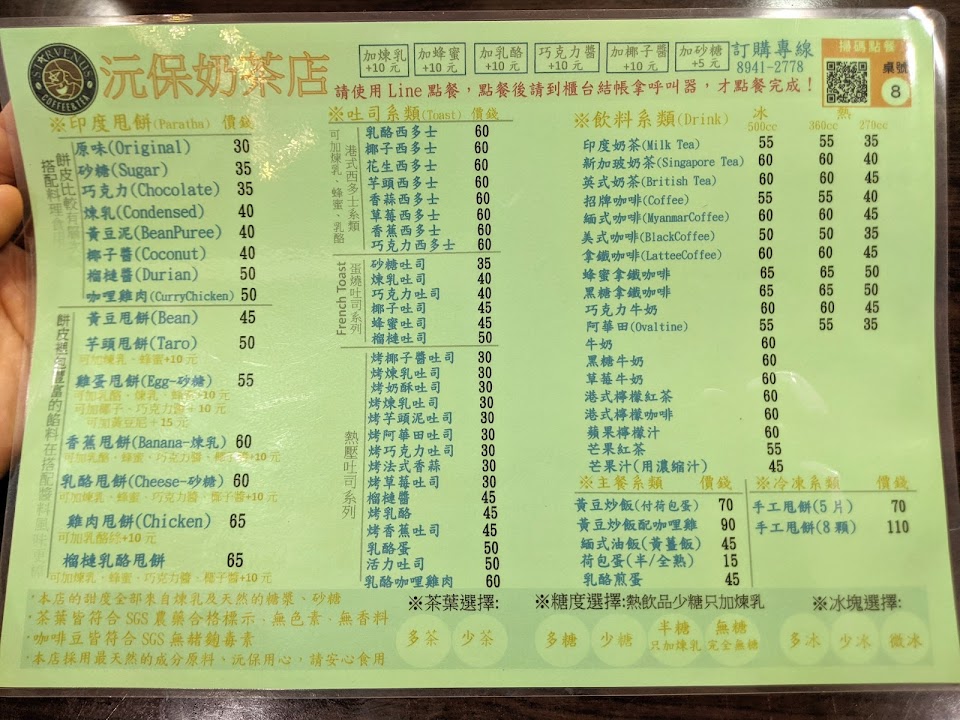 STARVENUS
COFFEE&TEA
沅保奶茶店
加煉乳 +10 元
加蜂蜜 +10 元
加乳酪 +10 元
巧克力醬 +10 元
加椰子醬 +10 元
加砂糖 +5 元
訂購專線
8941-2778
掃碼點餐
桌號
8
請使用 Line 點餐，點餐後請到櫃台結帳拿呼叫器，才點餐完成！
※印度甩餅(Paratha) 價錢
餅皮比較有
搭配料理食
原味(Original) 30
砂糖(Sugar) 35
巧克力(Chocolate) 35
煉乳(Condensed) 40
黃豆泥(BeanPuree) 40
椰子醬(Coconut) 40
榴槤醬(Durian) 50
咖哩雞肉(CurryChicken) 50
餅皮裡包豐富的餡料在搭配醬料風味更
黃豆甩餅(Bean) 45
芋頭甩餅(Taro) 50
可加煉乳、蜂蜜+10 元
雞蛋甩餅(Egg-砂糖) 55
可加乳酪、煉乳、蜂蜜+10 元
可加椰子、巧克力醬+10 元
可加黃豆泥+15 元
香蕉甩餅(Banana-煉乳) 60
可加乳酪、蜂蜜、巧克力醬、椰子醬+10 元
乳酪甩餅(Cheese-砂糖) 60
可加煉乳、蜂蜜、巧克力醬、椰子醬+10 元
雞肉甩餅(Chicken) 65
可加乳酪絲+10 元
榴槤乳酪甩餅 65
可加煉乳、蜂蜜、巧克力醬、椰子醬+10 元
※吐司系類(Toast) 價錢
港式西多士系類
可加煉乳、蜂蜜、乳酪
乳酪西多士 60
椰子西多士 60
花生西多士 60
芋頭西多士 60
香蒜西多士 60
草莓西多士 60
香蕉西多士 60
巧克力西多士 60
蛋燒吐司系列
French Toast
砂糖吐司 35
煉乳吐司 40
巧克力吐司 40
椰子吐司 45
蜂蜜吐司 45
榴槤吐司 50
熱壓吐司系列
烤椰子醬吐司 30
烤煉乳吐司 30
烤奶酥吐司 30
烤煉乳吐司 30
烤芋頭泥吐司 30
烤阿華田吐司 30
烤巧克力吐司 30
烤法式香蒜 30
烤草莓吐司 30
榴槤醬 45
烤乳酪 45
烤香蕉吐司 45
乳酪蛋 50
活力吐司 50
乳酪咖哩雞肉 60
※飲料系類(Drink) 冰 熱
500cc 360cc 270cc
印度奶茶(Milk Tea) 55 55 35
新加玻奶茶(Singapore Tea) 60 60 40
英式奶茶(British Tea) 60 60 45
招牌咖啡(Coffee) 55 55 40
緬式咖啡(MyanmarCoffee) 60 60 45
美式咖啡(BlackCoffee) 50 50 35
拿鐵咖啡(LatteeCoffee) 60 60 45
蜂蜜拿鐵咖啡 65 65 50
黑糖拿鐵咖啡 65 65 50
巧克力牛奶 60 60 45
阿華田(Ovaltine) 55 55 35
牛奶 60
黑糖牛奶 60
草莓牛奶 60
港式檸檬紅茶 60
港式檸檬咖啡 60
蘋果檸檬汁 60
芒果紅茶 55
芒果汁(用濃縮汁) 45
※主餐系類 價錢
黃豆炒飯(付荷包蛋) 70
黃豆炒飯配咖哩雞 90
緬式油飯(黃薑飯) 45
荷包蛋(半/全熟) 15
乳酪煎蛋 45
※冷凍系類 價錢
手工甩餅(5 片) 70
手工甩餅(8 顆) 110
·本店的甜度全部來自煉乳及天然的糖漿、砂糖
·茶葉皆符合 SGS 農藥合格標示、無色素、無香料
·咖啡豆皆符合 SGS 無赭麴毒素
·本店採用最天然的成分原料、沅保用心，請安心食用
※茶葉選擇:
多茶 少茶
※糖度選擇:熱飲品少糖只加煉乳
多糖 少糖 半糖 只加煉乳 無糖 完全無糖
※冰塊選擇:
多冰 少冰 微冰